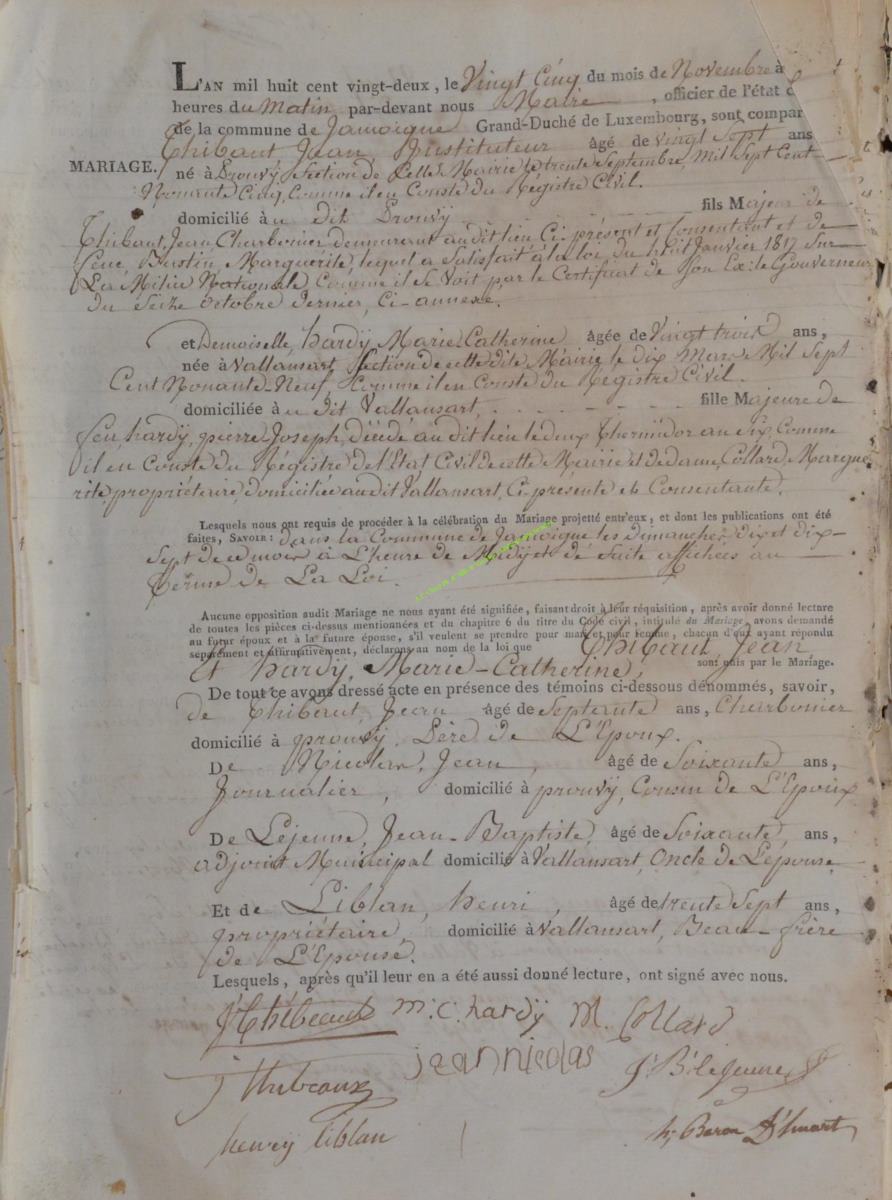 L'AN mil huit cent vingt-deux, le Vingt Cinq du mois de Novembre à
heures du Matin par-devant nous Maire, officier de l'état
de la commune de Jamoigne Grand-Duché de Luxembourg, sont compar
Thibaut Jean Instituteur âgé de vingt Sept ans
MARIAGE. né à Prouvÿ Section de Cette Mairie le trente Septembre Mil Sept Cent
Nonante Cinq, Comme il en Conste du Régistre Civil.
domicilié à u dit Prouvÿ fils Majeur de
Thibaut, Jean Charbonier demeurant audit lieu Ci présent et Consentant et de
feue Marguerite, lequel a Satisfait à la loi du huit Janvier 1817 Sur
La Milice Nationale Comme il Se Voit par le Certificat de Son Ex: le Gouverneur
du Seize octobre dernier, ci-annexé.
et Demoiselle, hardÿ Marie Catherine âgée de Vingt trois ans,
née à Vallansart Section de cette dite Mairie le dix Mars Mil Sept
Cent Nonante-Neuf, Comme il en Conste du Régistre Civil.
domiciliée à u dit Vallansart, fille Majeure de
feu, hardÿ, pierre Joseph, décédé au dit lieu le deux Thermidor an Six, Comme
il en Conste du Régistre de l'Etat Civil de cette Mairie et de dame, Collard, Margue
rite, propriétaire, domiciliée audit Vallansart, Ci-présente et Consentante.
Lesquels nous ont requis de procéder à la célébration du Mariage projetté entr'eux, et dont les publications ont été
faites, SAVOIR: dans la Commune de Jamoigne les dimanches dix et dix-
Sept de ce mois à L'heure de Midÿ et de Suite affichées au
Terme de La Loi.
Aucune opposition audit Mariage ne nous ayant été signifiée, faisant droit à leur réquisition, après avoir donné lecture
de toutes les pièces ci-dessus mentionnées et du chapitre 6 du titre du Code civil, intitulé du Mariage, avons demandé
au futur époux et à la future épouse, s'il veulent se prendre pour mari et pour femme, chacun d'eux ayant répondu
séparément et affirmativement, déclarons au nom de la loi que Thibaut, Jean,
Et hardÿ, Marie-Catherine, sont unis par le Mariage.
De tout ce avons dressé acte en présence des témoins ci-dessous dénommés, savoir,
de Thibaut, Jean âgé de Septante ans, Charbonier
domicilié à prouvÿ, Père de L'Epoux.
De Nicolas, Jean, âgé de Soixante ans,
Journalier, domicilié à prouvÿ, Cousin de L'Epoux
De Léjeune, Jean-Baptiste, âgé de Soixante, ans,
adjoint Municipal domicilié à Vallansart, Oncle de L'épouse
Et de Liblan, henri, âgé de trente Sept ans,
propriétaire, domicilié à Vallansart, Beau-frère
de L'Epouse.
Lesquels, après qu'il leur en a été aussi donné lecture, ont signé avec nous.
J Thibeaux m: C. hardÿ M. Collard
j thibeaux jean nicolas J: B: lejeune
henrÿ liblan Baron D'huart